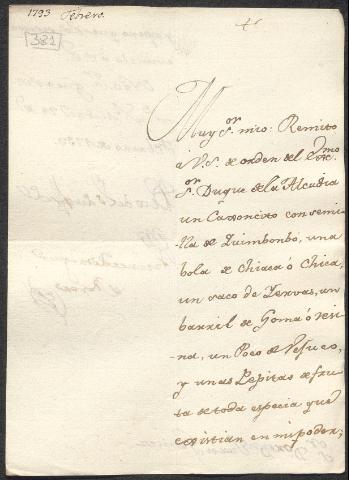 1793 Febrero.
381
Muy S.or mio: Remito
a V.S. de orden del Exc.mo
S.or Duque de la Alcudia
un Caxoncito con semi-
lla de Quimbombó, una
bola de Chiaca ó Chica,
un saco de Yervas, un
barril de Goma ó resi-
na, un Poco de Vejuco,
y unas Pepitas de fru-
ta de toda especie que
existian en mi poder;